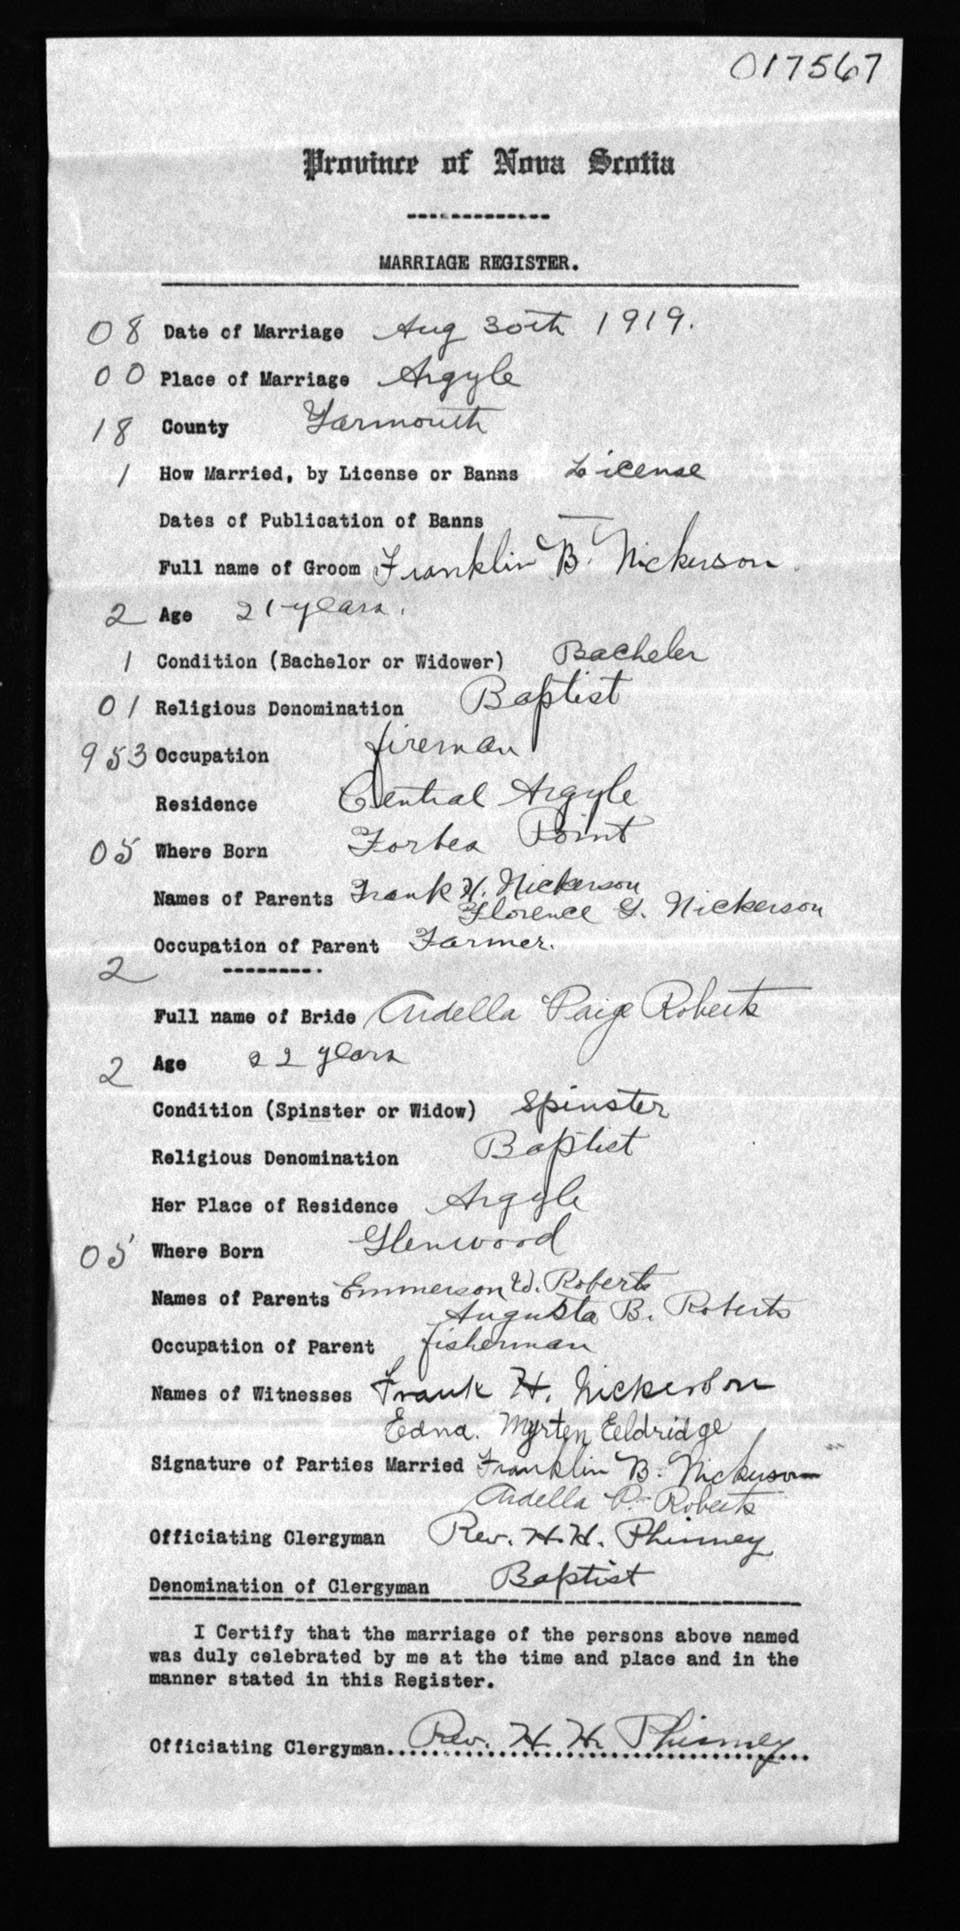 017567
Province of Nova Scotia
MARRIAGE REGISTER.
08 Date of Marriage Aug 30th 1919.
00 Place of Marriage Argyle
18 County Yarmouth
1 How Married, by License or Banns License
Dates of Publication of Banns —
Full name of Groom Franklin B. Nickerson
2 Age 21 years.
1 Condition (Bachelor or Widower) Bacheler
01 Religious Denomination Baptist
953 Occupation fireman
Residence Central Argyle
05 Where Born Forbes Point
Names of Parents Frank H. Nickerson
Florence G. Nickerson
Occupation of Parent Farmer.
2
Full name of Bride Ardella Paige Roberts
2 Age 22 years
Condition (Spinster or Widow) Spinster
Religious Denomination Baptist
Her Place of Residence Argyle
05 Where Born Glenwood
Names of Parents Emmerson W. Roberts
Augusta B. Roberts
Occupation of Parent fisherman
Names of Witnesses Frank H. Nickerson
Edna. Myrten Eeldridge
Signature of Parties Married Franklin B. Nickerson
Ardella P. Roberts
Officiating Clergyman Rev. H. H. Phinney
Denomination of Clergyman Baptist
I Certify that the marriage of the persons above named
was duly celebrated by me at the time and place and in the
manner stated in this Register.
Officiating Clergyman Rev. H. H. Phinney